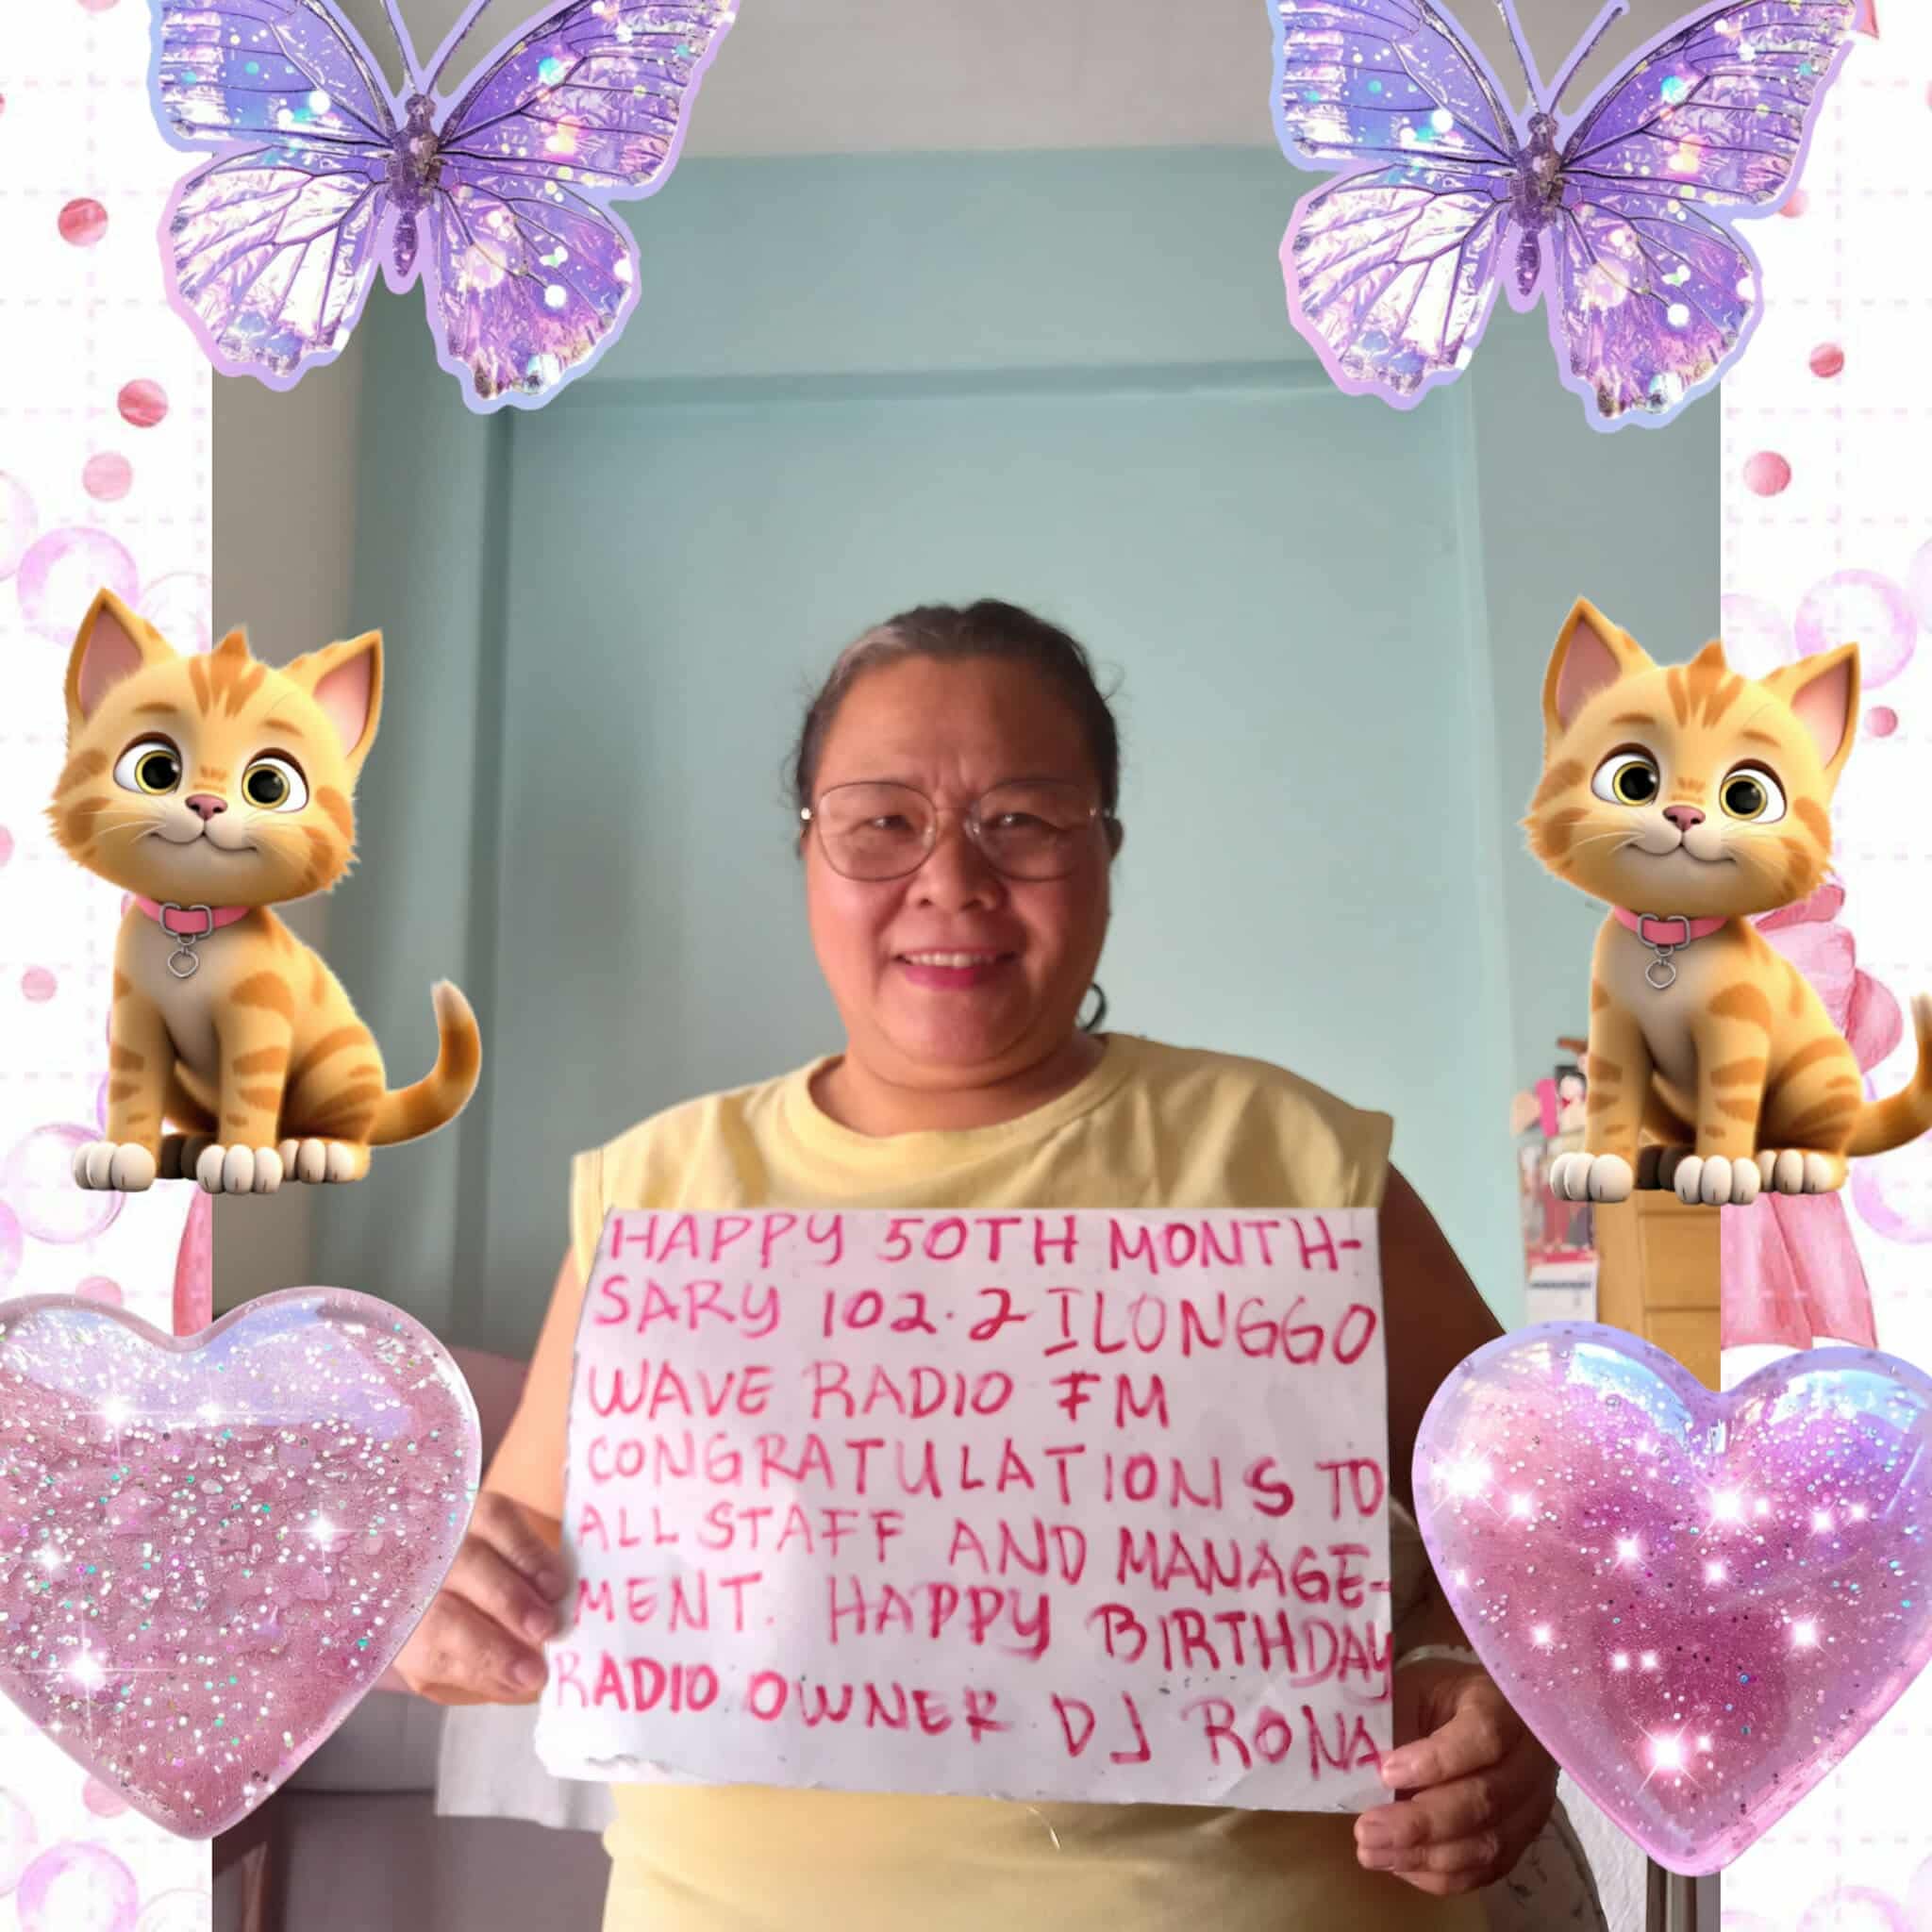 HAPPY 50TH MONTH-
SARY 102.2 ILONGGO
WAVE RADIO FM
CONGRATULATIONS TO
ALL STAFF AND MANAGE-
MENT. HAPPY BIRTHDAY
RADIO OWNER DJ RONA